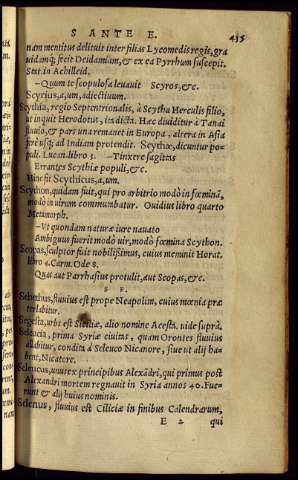 S ANTE E. 435
nam mentitus delituit inter filias Lycomedis regis, gra
uidamq́; fecit Deidamiam, & ex ea Pyrrhum suscepit.
Stat. in Achilleid.
—Quam te scopulosa leuauit Scyros, &c.
Scyrius, a, um, adiectiuum.
Scythia, regio Septentrionalis, à Scytha Herculis filio,
ut inquit Herodotus, ita dicta. Haec diuiditur à Tanai
fluuio, & pars una remanet in Europa, altera in Asia
ferè usq; ad Indiam protendit. Scythae, dicuntur po=
puli. Lucan. libro 3. —Tinxere sagittas
Errantes Scythiae populi, &c.
Hinc fit Scythicus, a, um.
Scython, quidam fuit, qui pro arbitrio modò in foeminã,
modò in uirum commutabatur. Ouidius libro quarto
Metamorph.
—Vt quondam naturae iure nouato
Ambiguus fuerit modò uir, modò foemina Scython.
Scopas, sculptor fuit nobilissimus, cuius meminit Horat.
libro 4. Carm. Ode 8.
Quas aut Parrhasius protulit, aut Scopas, &c.
S E.
Sebethus, fluuius est prope Neapolim, cuius moenia prae
terlabitur.
Segesta, urbs est Siciliae, alio nomine Acesta. uide suprà.
Seleucia, prima Syriae ciuitas, quam Orontes fluuius
allabitur, condita à Seleuco Nicanore, siue ut alij ha=
bent, Nicatore.
Seleucus, unus ex principibus Alexãdri, qui primus post
Alexandri mortem regnauit in Syria annos 40. Fue=
runt & alij huius nominis.
Selenus, fluuius est Ciliciae in finibus Calendrarum,
E 2 qui